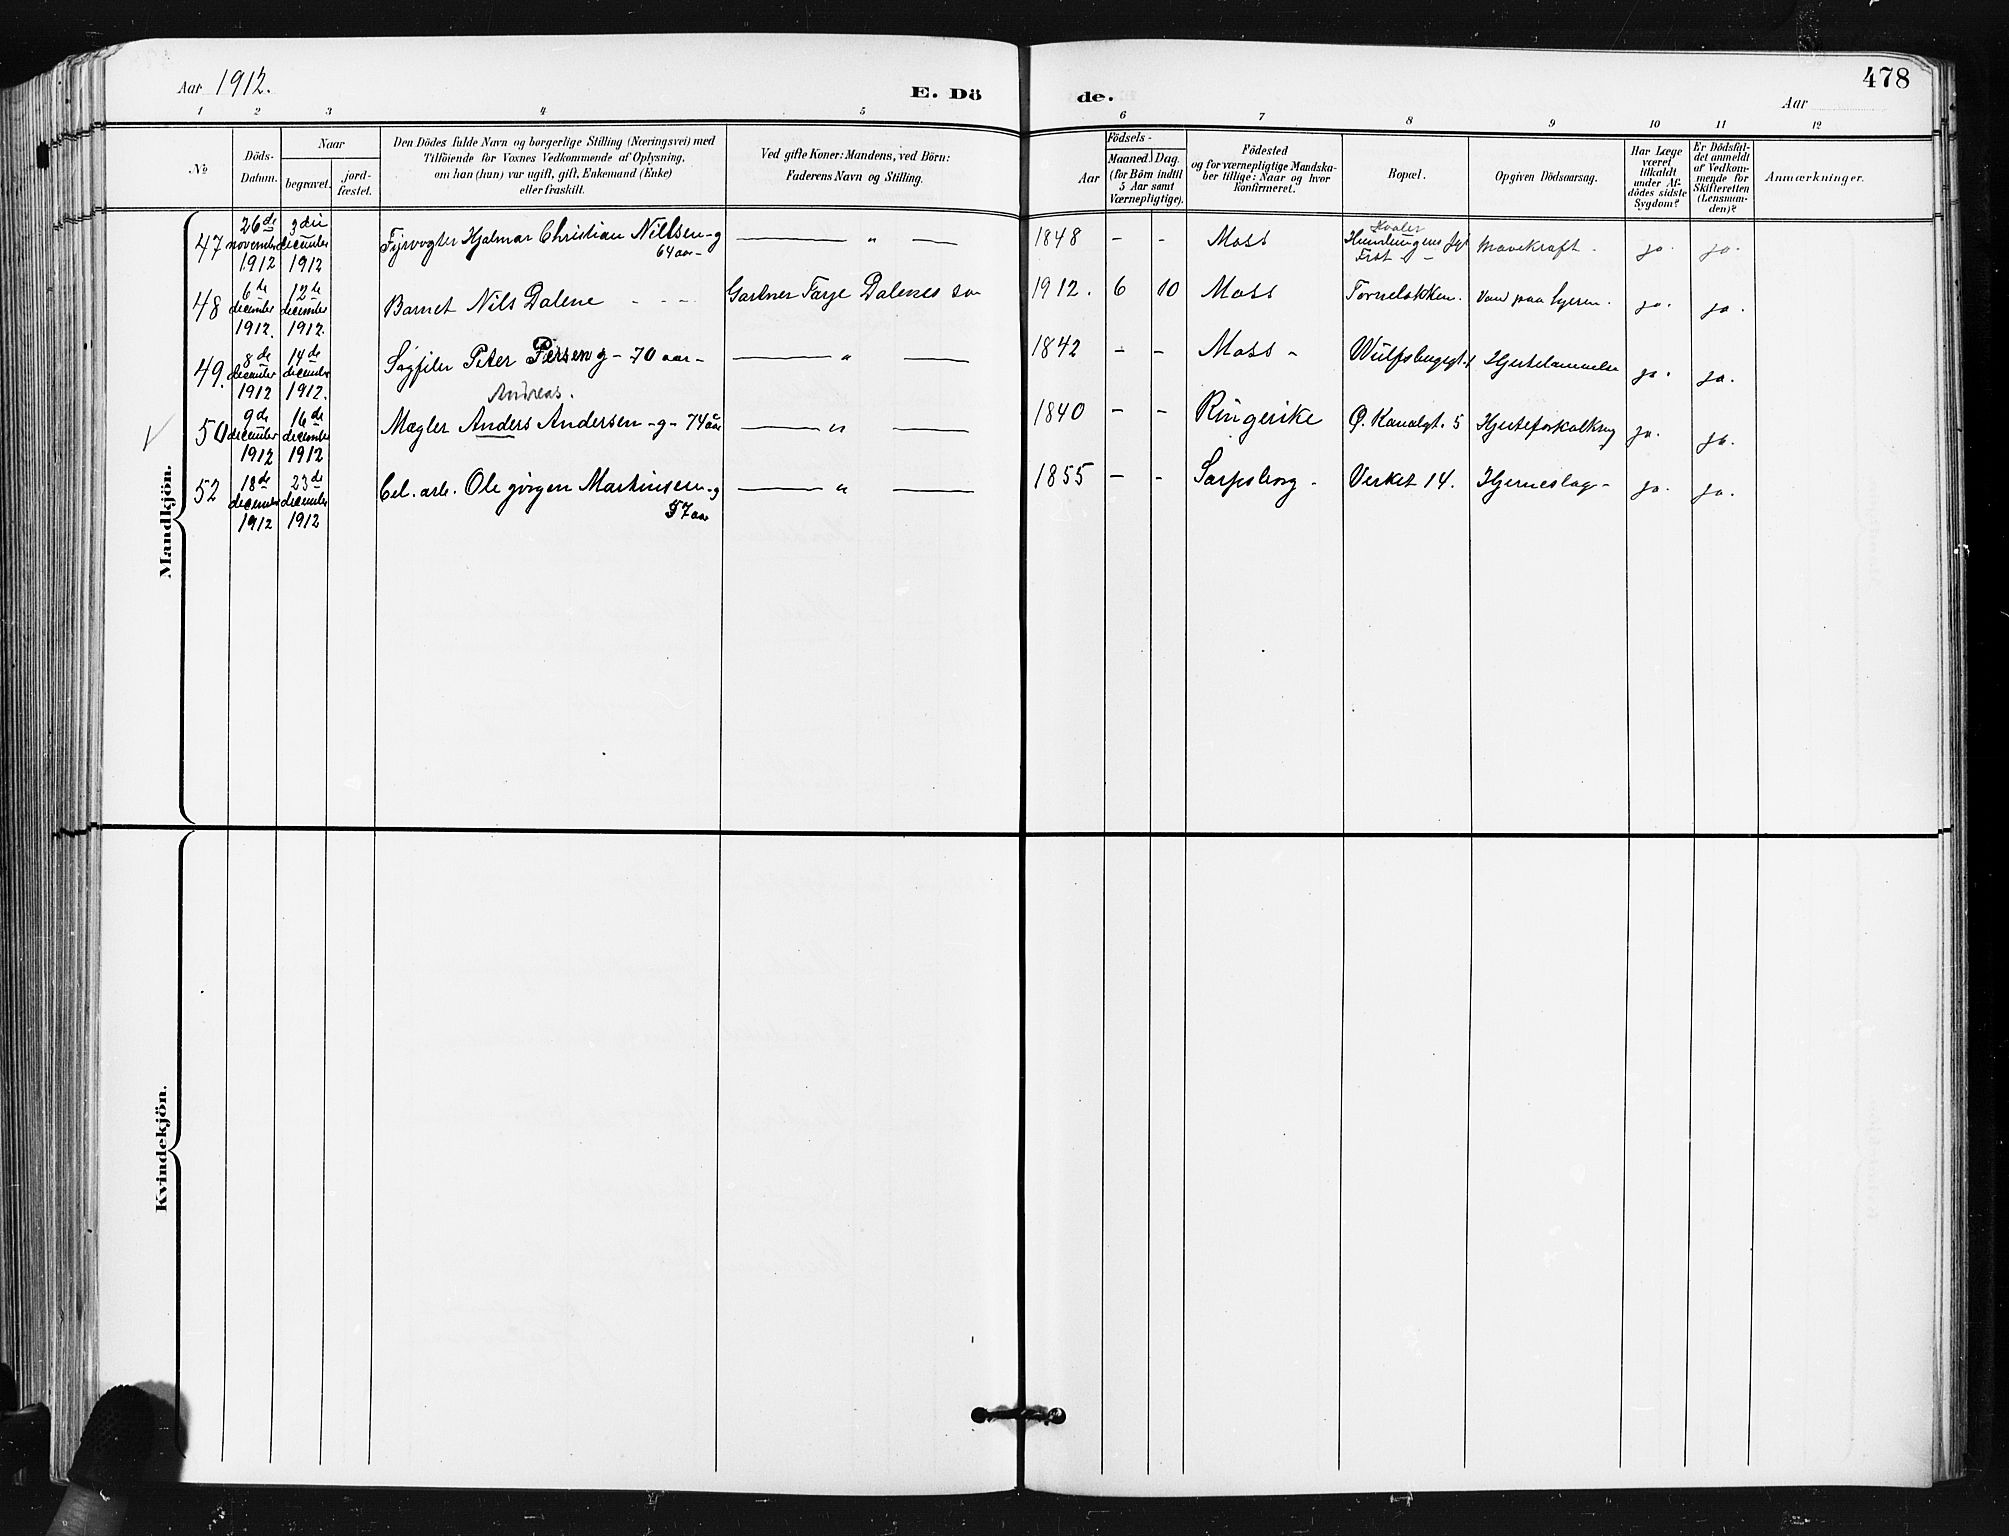 Aar 1912.
E. Dö de.
Aar
478
1 2 3 4 5 6 7 8 9 10 11 12
No
Döds-Datum.
Naar
begravet.
jord-fæstet.
Den Dödes fulde Navn og borgerlige Stilling (Næringsvei) med
Tilföiende for Voxnes Vedkommende af Oplysning,
om han (hun) var ugift, gift, Enkemand (Enke)
eller fraskilt.
Ved gifte Koner: Mandens, ved Börn:
Faderens Navn og Stilling.
Födsels-
Aar
Maaned. Dag.
(for Börn indtil
5 Aar samt
Værnepligtige).
Födested
og for værnepligtige Mandska-
ber tillige: Naar og hvor
konfirmeret.
Bopæl.
Opgiven Dödsaarsag.
Har Læge
været
tilkaldt
under Af-
dödes sidste
Sygdom?
Er Dödsfal-
det anmeldt
af Vedkom-
mende for
Skifteretten
(Lensman-
den)?
Anmærkninger.
Mandkjön.
47 26de november 1912 3die december 1912 Fyrvogter Hjalmar Christian Niltsen - g 64 aar - — " — 1848 - - Moss Hvaler Fyrst Mavekræft - ja. ja.
48 6de december 1912. 12de december 1912. Barnet Nils Dalene - - - Gartner Farje Dalenes sø 1912. 6 10 Moss Torneløkken. Vand paa hjernen. ja. ja.
49. 8de december 1912 14de december 1912. Sagfiler Peter Persen g - 70 aar - — " — 1842 - - Moss - Wulfsbergsgt. 1 Hjertelammelse ja. ja.
Andreas.
50 9de december 1912 16de december 1912 Mægler Anders Andersen - g - 74 aar — " — 1840 - - Ringerike Ø. Kanalgt. 5 Hjerteforkalkning ja. ja.
52 18de december 1912 23de december 1912 Cel. arb. Ole Jørgen Martinsen - g 57 aar — " — 1855 - - Sarpsborg - Verket 14. Hjerneslag - ja. ja.
Kvindekjön.